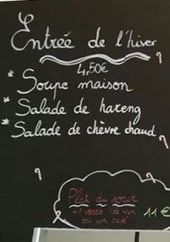 Entrée de l'hiver
4,50€
* Soupe maison
* Salade de hareng
* Salade de chèvre chaud
Plat du jour
+1 verre de vin
ou un café
11€